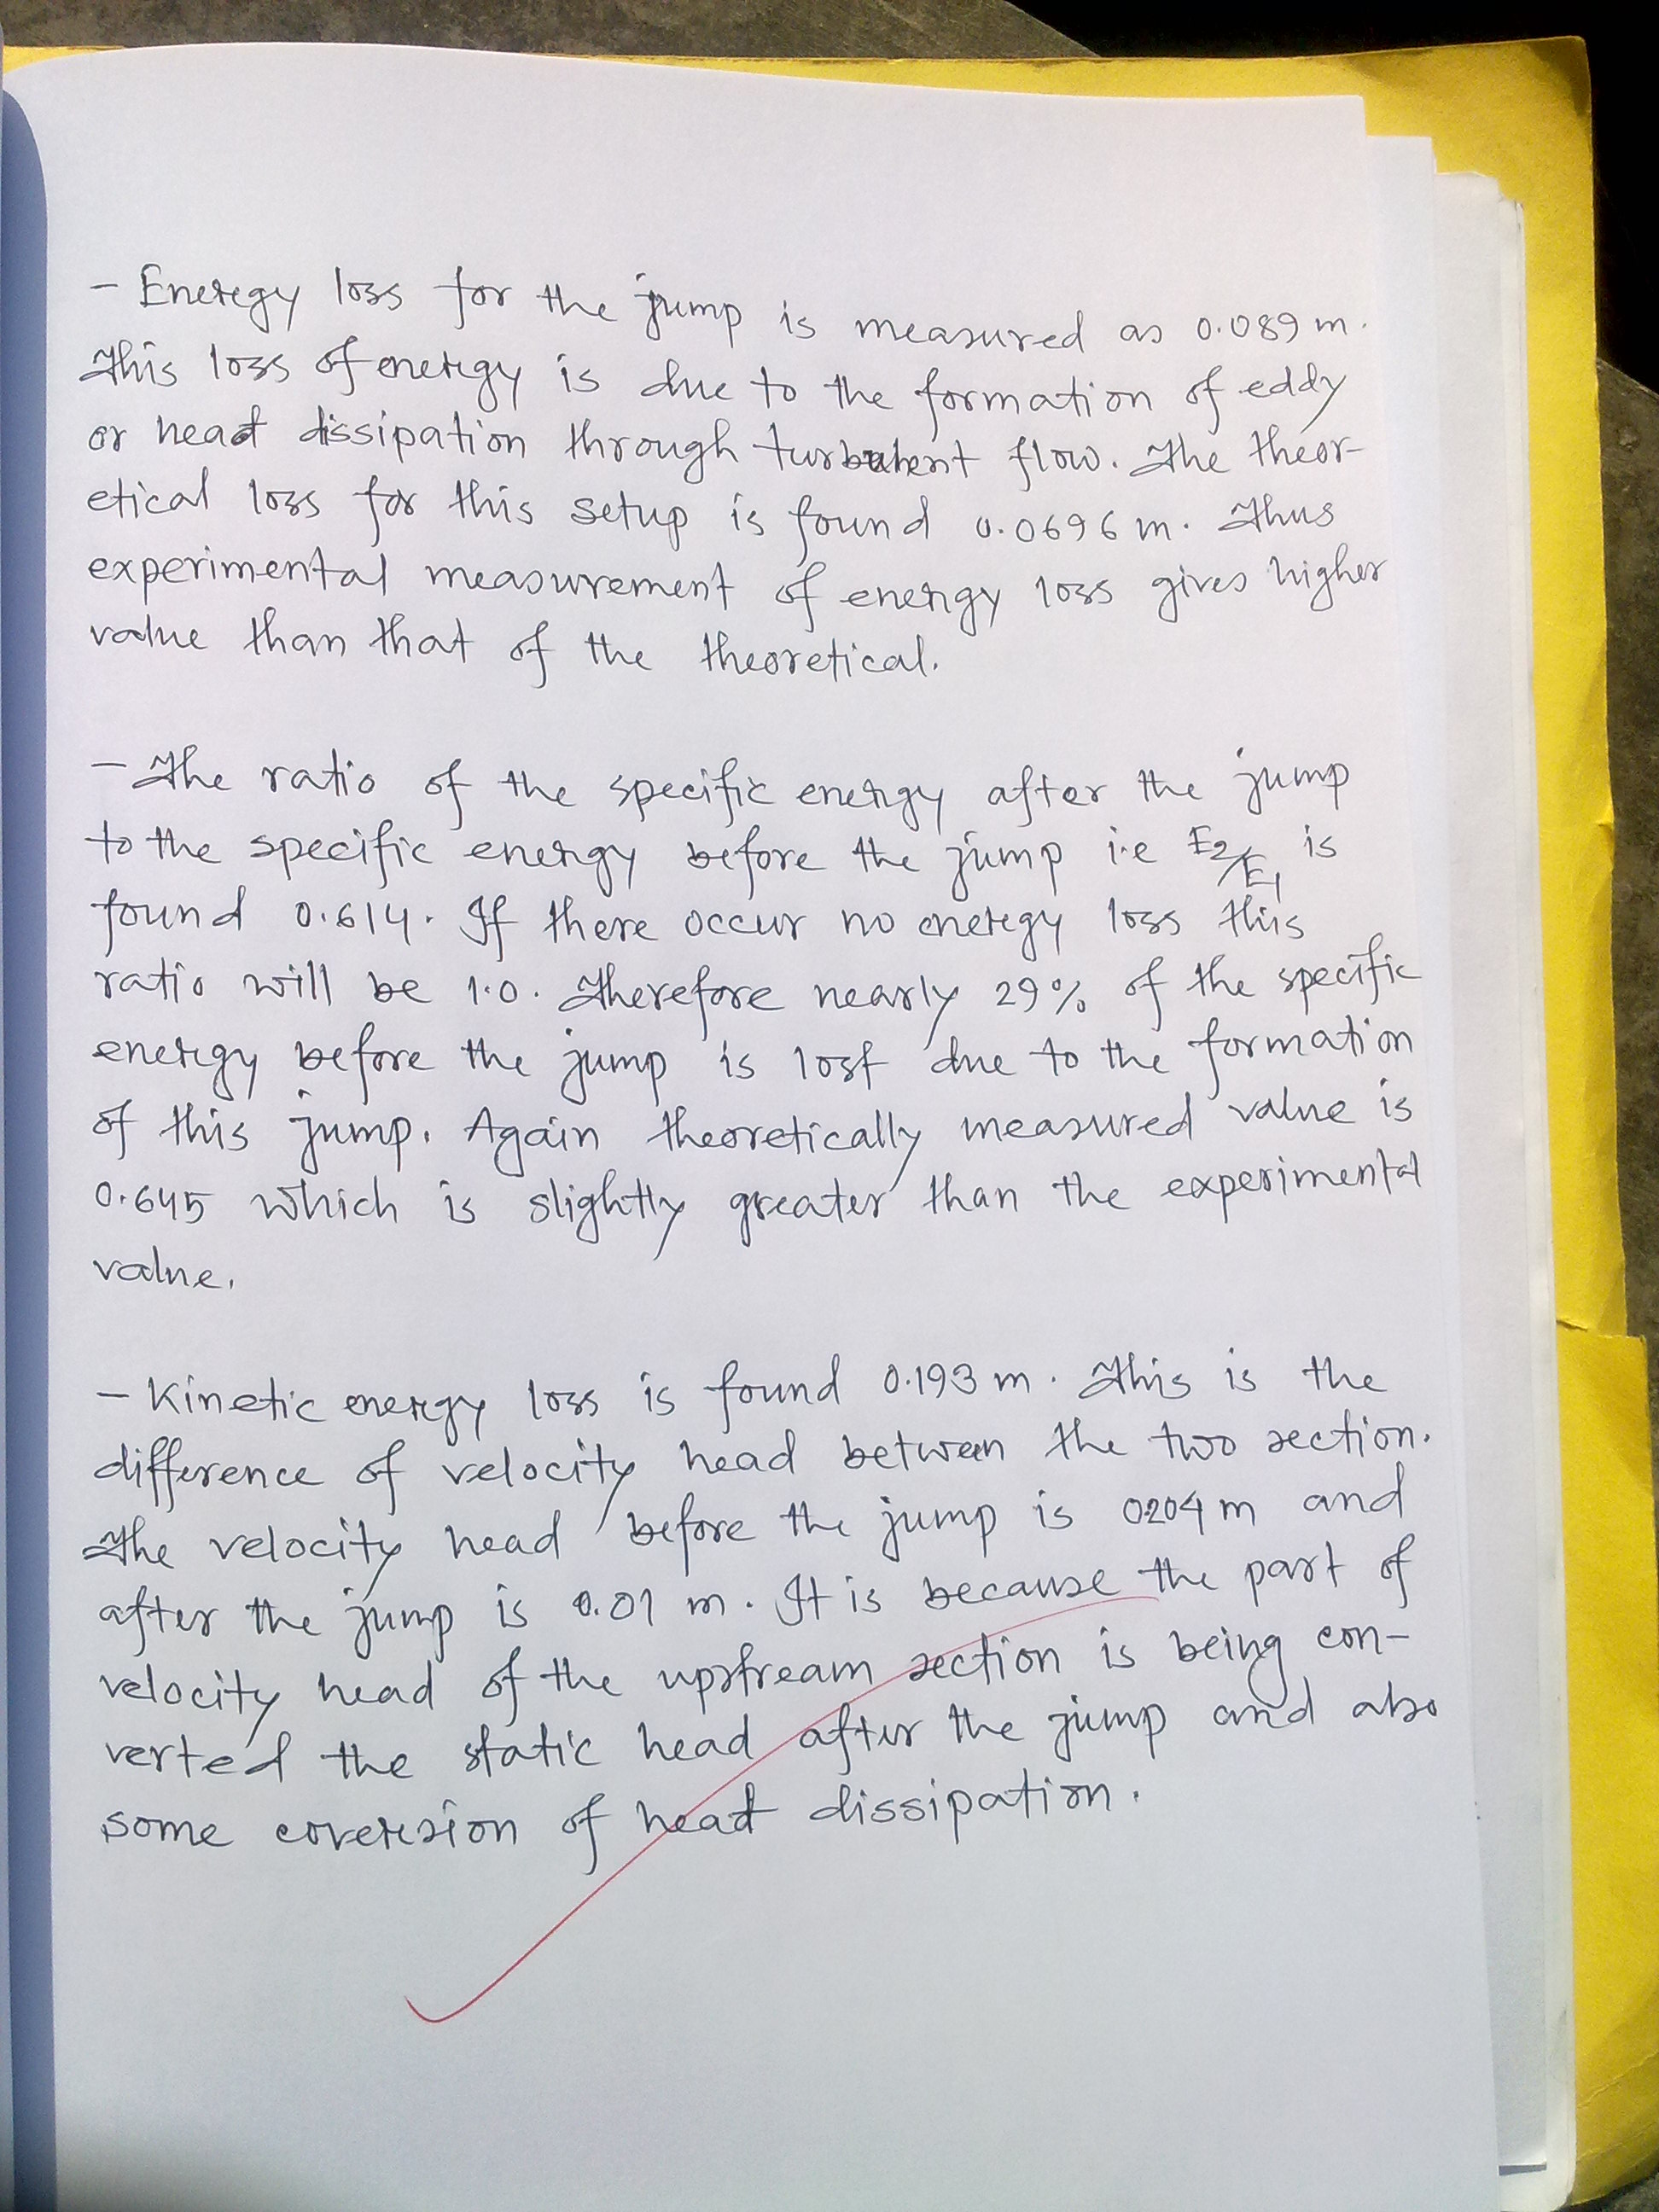 - Energy loss for the jump is measured as 0.089 m.
This loss of energy is due to the formation of eddy
or heat dissipation through turbulent flow. The theor-
etical loss for this setup is found 0.0696 m. Thus
experimental measurement of energy loss gives higher
value than that of the theoretical.
- The ratio of the specific energy after the jump
to the specific energy before the jump i.e E2/E1 is
found 0.614. If there occur no energy loss this
ratio will be 1.0. Therefore nearly 29% of the specific
energy before the jump is lost due to the formation
of this jump. Again theoretically measured value is
0.645 which is slightly greater than the experimental
value.
- Kinetic energy loss is found 0.193 m. This is the
difference of velocity head between the two section.
The velocity head before the jump is 0204 m and
after the jump is 0.01 m. It is because the part of
velocity head of the upstream section is being con-
verted the static head after the jump and also
some coversion of heat dissipation.